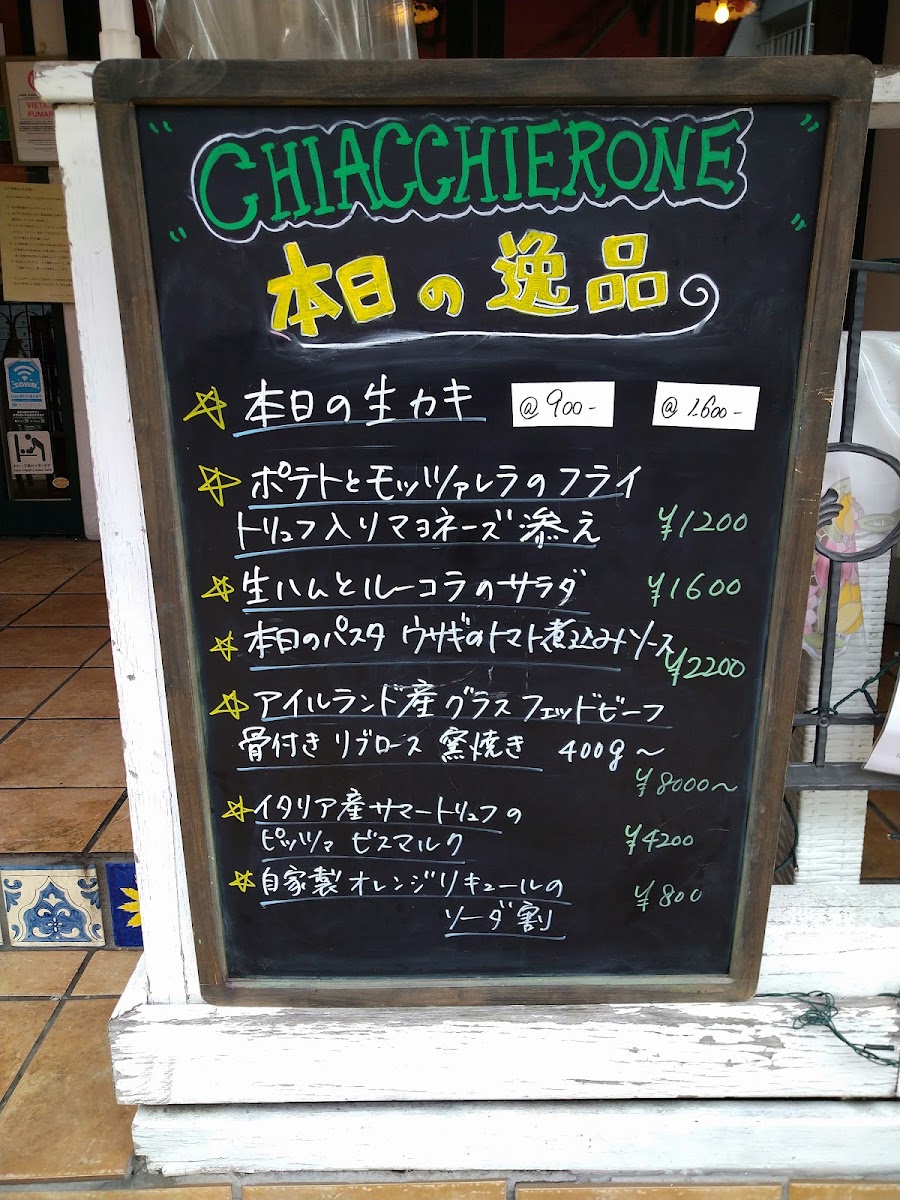 CHIACCHIERONE
本日の逸品
本日の生カキ @900- @1.600-
ポテトとモッツァレラのフライ
トリュフ入りマヨネーズ添え ¥1200
生ハムとルーコラのサラダ ¥1600
本日のパスタ ウサギのトマト煮込みソース
¥2200
アイルランド産グラスフェッドビーフ
骨付きリブロース 窯焼き 400g〜
¥8000〜
イタリア産サマートリュフの
ピッツァ ビスマルク ¥4200
自家製オレンジリキュールの
ソーダ割 ¥800
VIETATO
FUMARE
TOWN